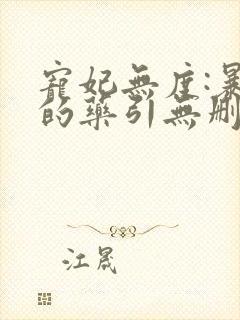 寵妃無度:暴
的藥引無刪
江晟